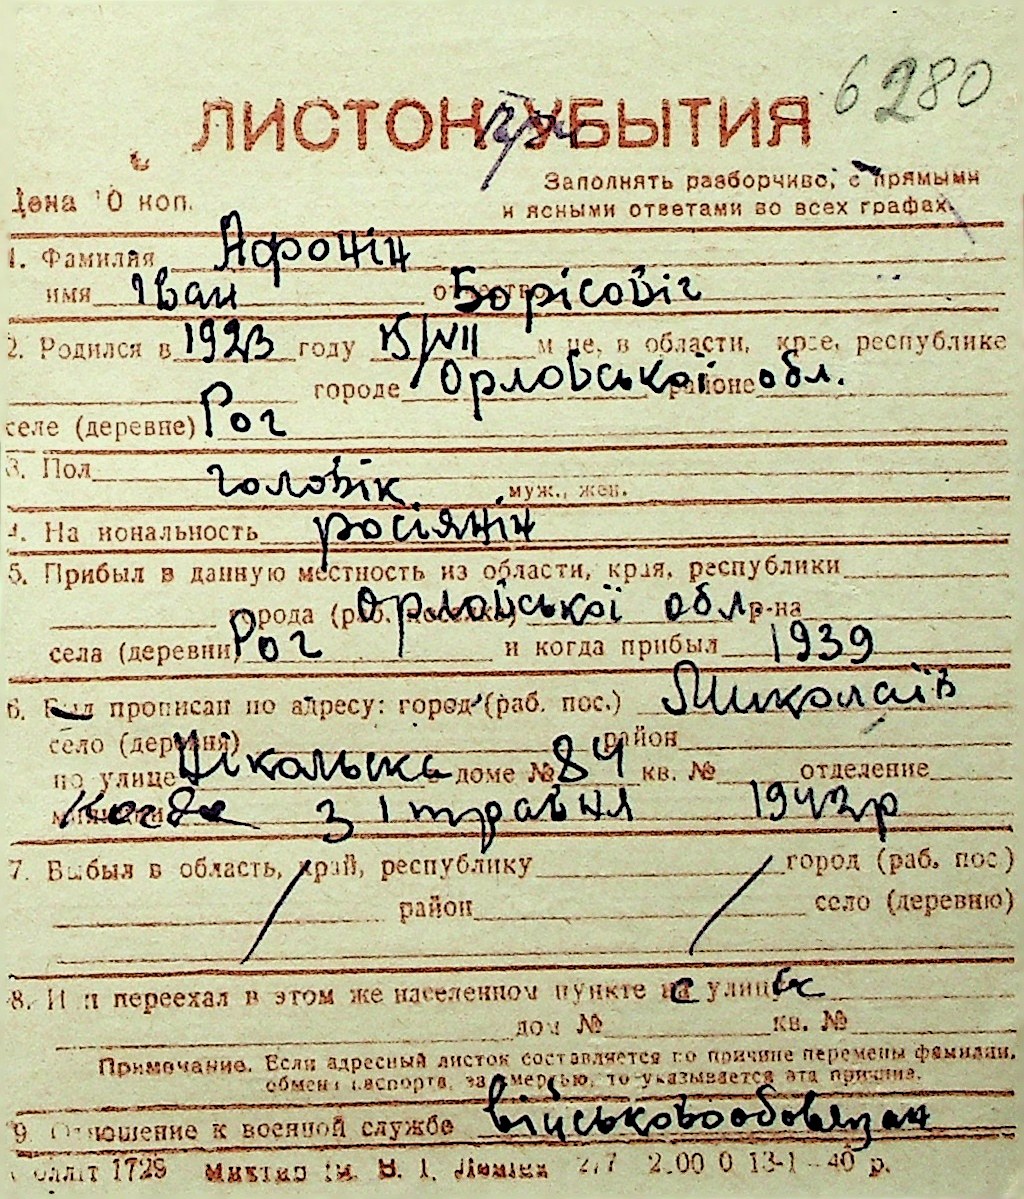 6280
ЛИСТОК УБЫТИЯ
Цена 10 коп.
Заполнять разборчиво, с прямыми
и ясными ответами во всех графах.
1. Фамилия Афонін
имя Іван отчество Борісовіч
2. Родился в 1923 году 15/VII м-це, в области, крае, республике
городе Орловської районе обл.
селе (деревне) Рог
3. Пол чоловік муж., жен.
4. Национальность росіянін
5. Прибыл в данную местность из области, края, республики
города (раб. поселка) Орловської обл. р-на
села (деревни) Рог и когда прибыл 1939
6. Был прописан по адресу: город (раб. пос.) Миколаїв
село (деревня) район
по улице Нікольска доме № 84 кв. № отделение
милиции когда з 1 травня 1943р
7. Выбыл в область, край, республику город (раб. пос.)
район село (деревню)
8. Или переехал в этом же населенном пункте на улицу
дом № кв. №
Примечание. Если адресный листок составляется по причине перемены фамилии,
обмена паспорта, за смертью, то указывается эта причина.
9. Отношение к военной службе військовообовязан
1729 ім. В. І. Леніна 2/7 13-1-40 р.